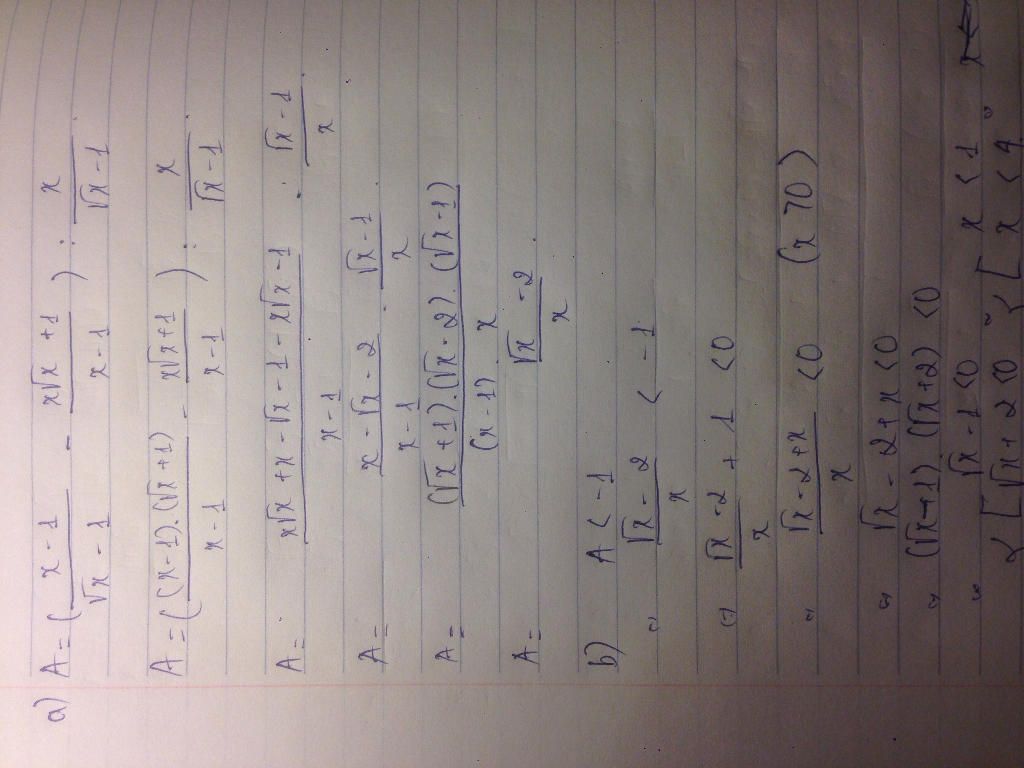 a) A = ( x - 1 / √x - 1 - x√x + 1 / x - 1 ) : x / √x - 1
A = ( (x - 1).(√x + 1) / x - 1 - x√x + 1 / x - 1 ) : x / √x - 1
A = x√x + x - √x - 1 - x√x - 1 / x - 1 . √x - 1 / x
A = x - √x - 2 / x - 1 . √x - 1 / x
A = (√x + 1).(√x - 2).(√x - 1) / (x - 1) x
A = √x - 2 / x
b) A < -1
(=) √x - 2 / x < -1
(=) √x - 2 / x + 1 < 0
√x - 2 + x / x < 0 (x > 0)
√x - 2 + x < 0
(√x - 1) (√x + 2) < 0
[ √x - 1 < 0 [ x < 1
√x + 2 < 0 x < 4